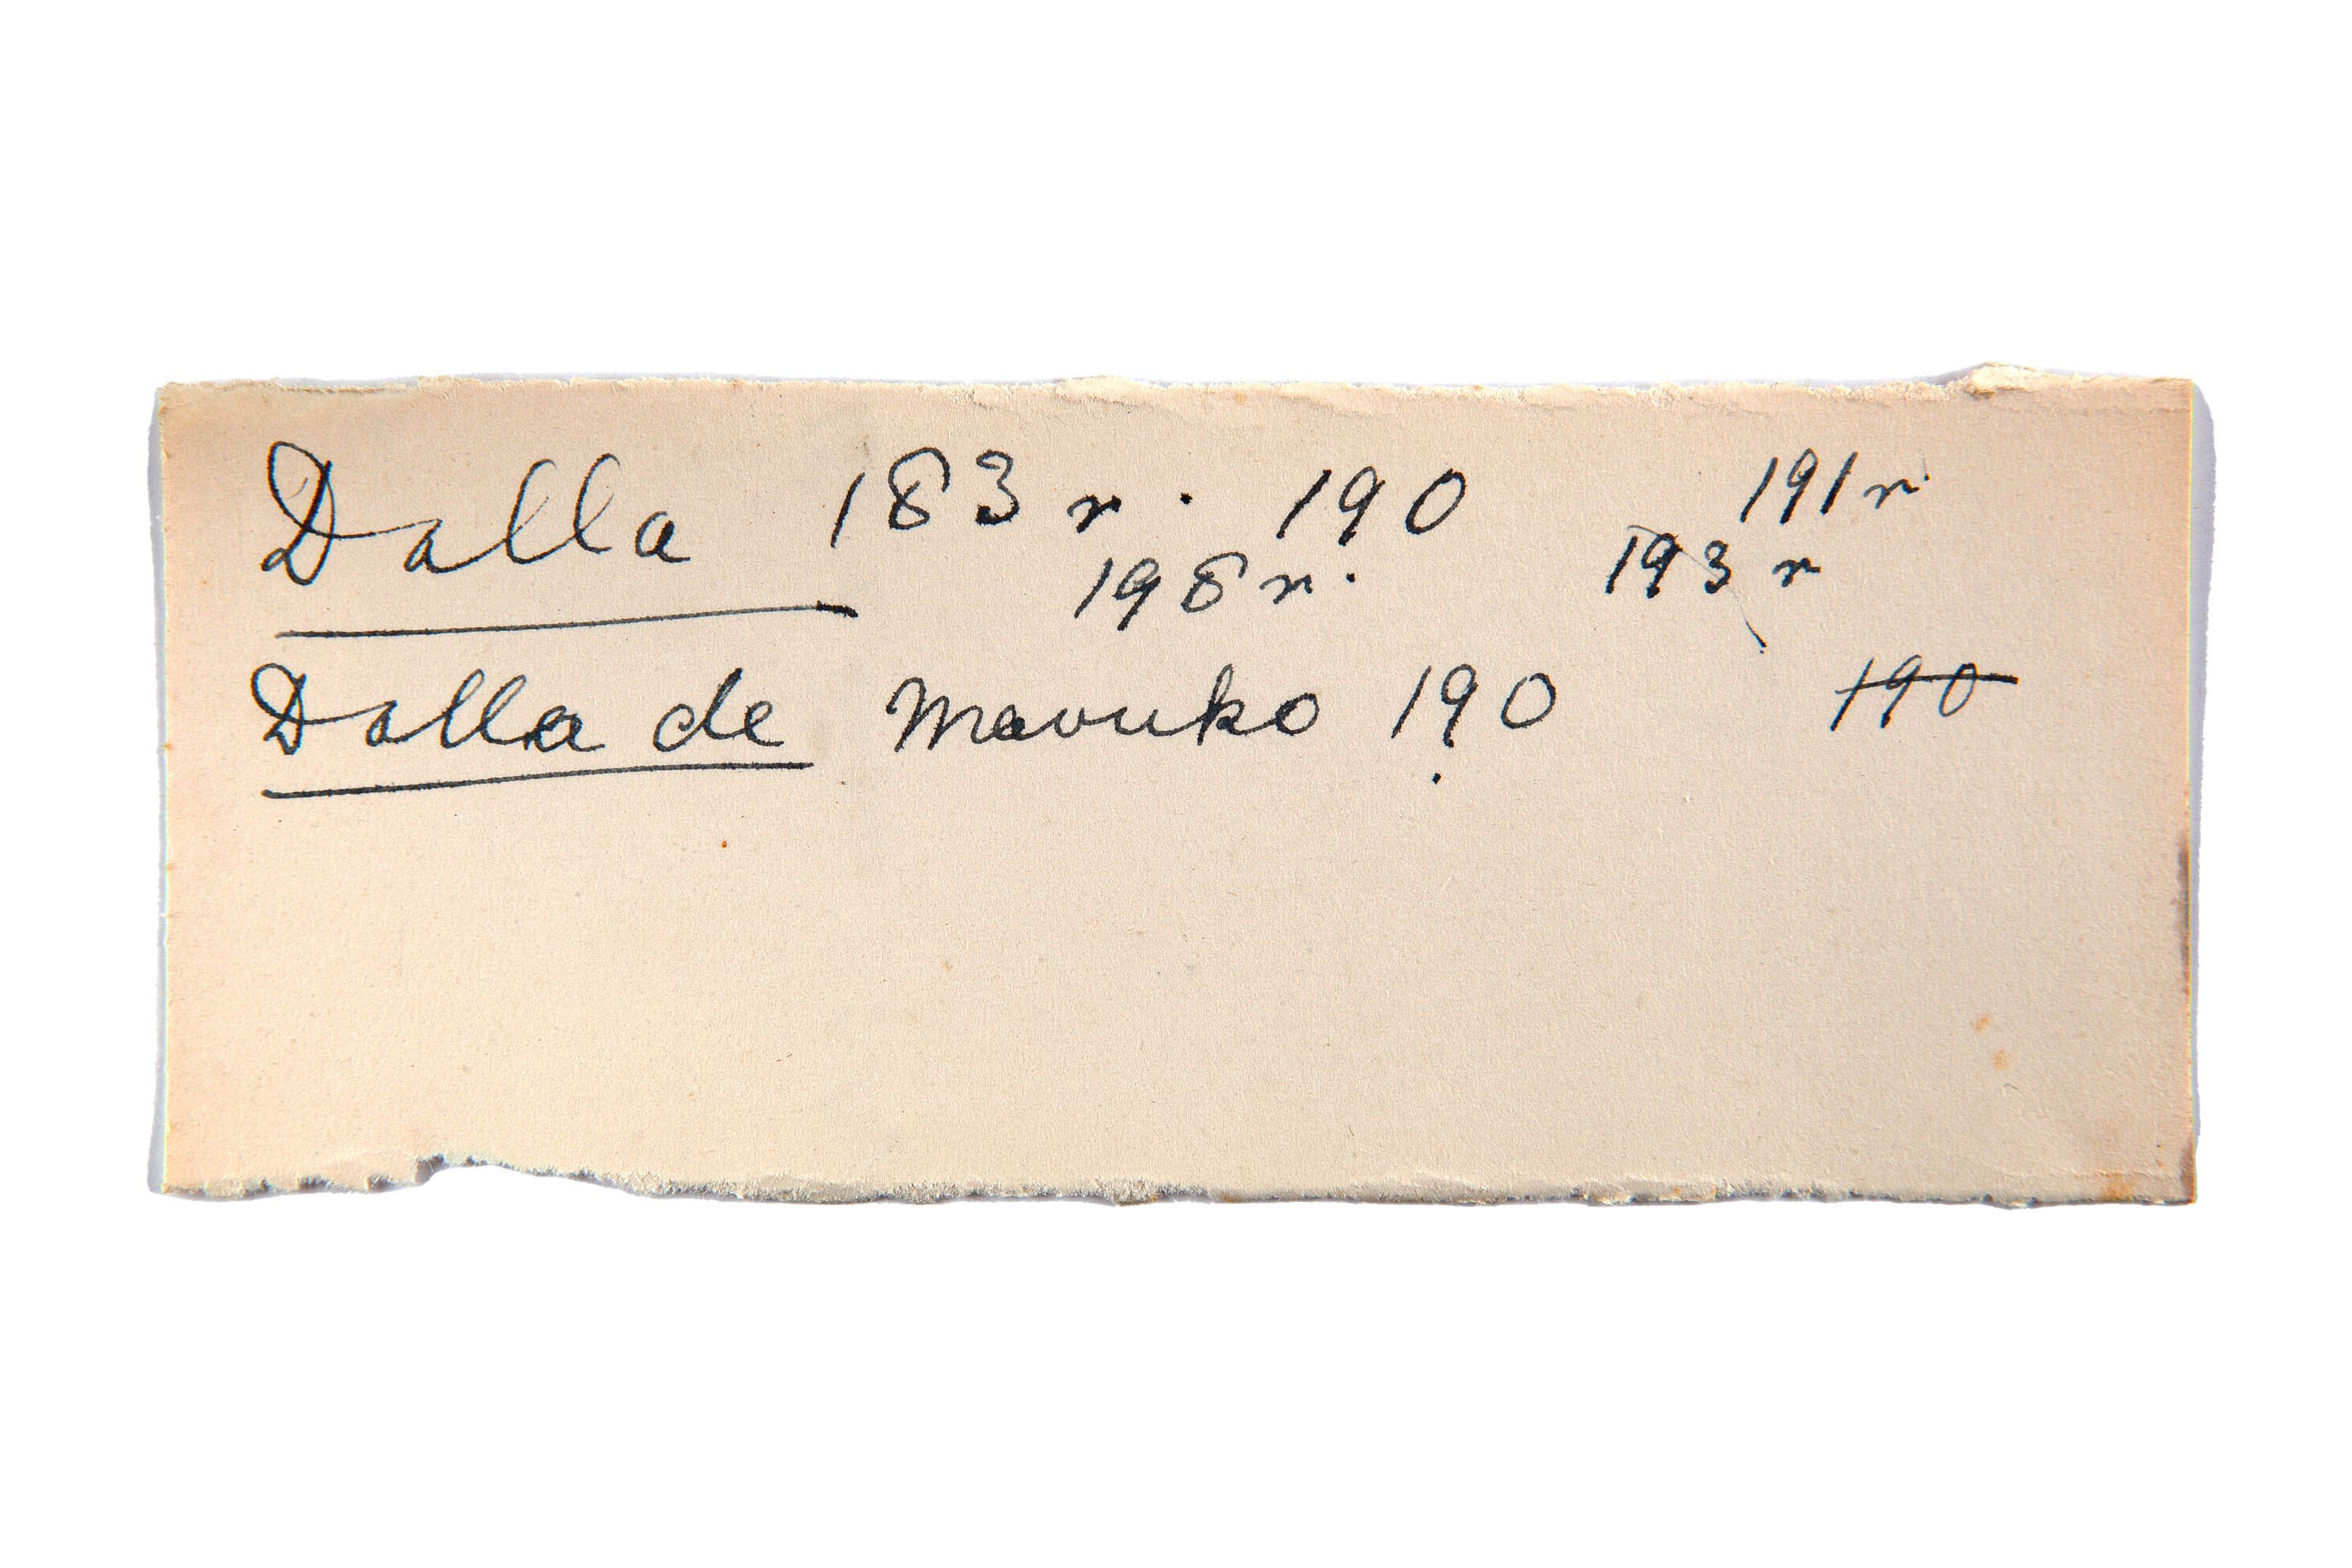 Dalla 183 r. 190 191 r.
198 r. 193 r
Dalla de Mavuko 190 190